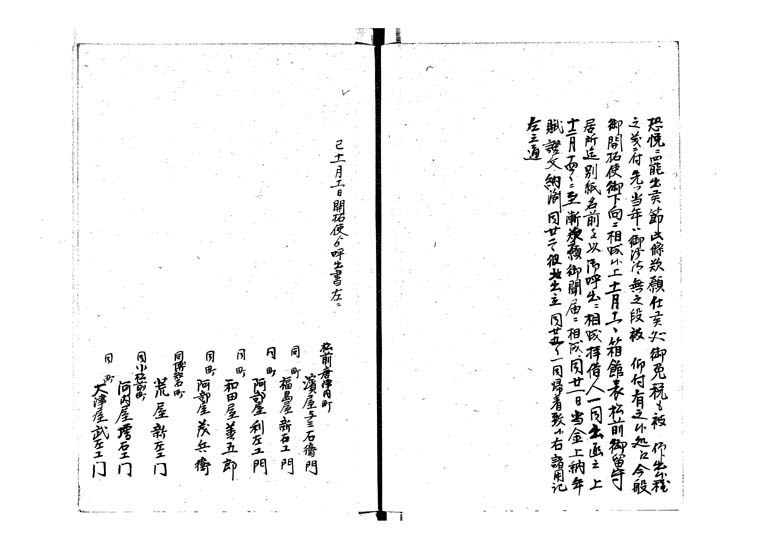 恐悦ニ罷出候節此條歎願仕候処御免税も被 仰出候程
之義ニ付先ツ当年ハ御沙汰無之段被 仰付有之候処今般
御開拓使御下向ニ相成候上十一月 箱館表松前御留守
居所迄別紙名前之以御呼出ニ相成拝借人一同出函之上
十一月 ニ至漸願御聞届ニ相成同廿一日当金上納年
賦證文納済同廿 彼地出立同廿 一同帰着致候右諸用記
左之通
己十一月 日開拓使ゟ呼出書左ニ
松前唐津内町
濱屋与三右衛門
同町
福島屋新右エ門
同町
阿部屋利左エ門
同町
和田屋茂五郎
同町
阿部屋茂兵衛
同博知石町
荒屋新左エ門
同小松前町
河内屋増右エ門
同町
大津屋武左エ門